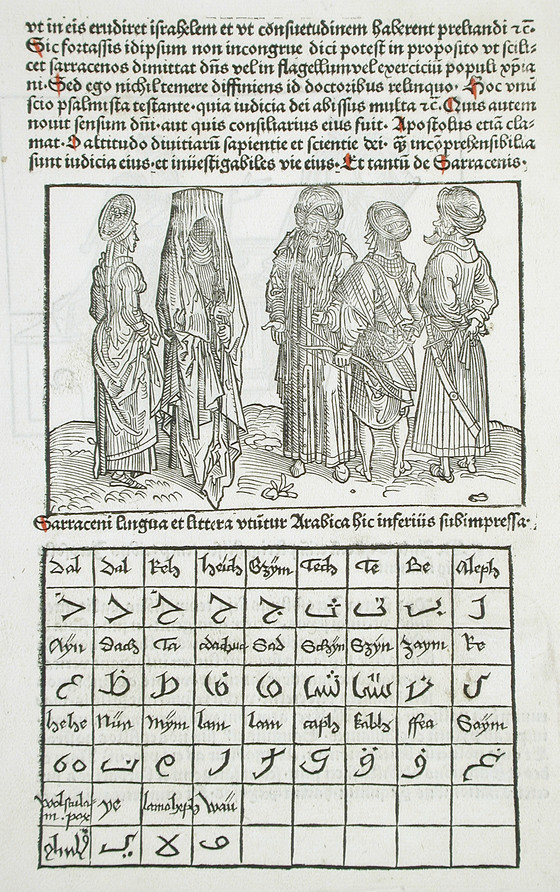 vt in eis erudiret israhelem et vt cōsuetudinem haberent preliandi ⁊c̄.
Sic fortassis idipsum non incongrue dici potest in proposito vt scili-
cet sarracenos dimittat dn̄s vel in flagellum vel exerciciū populi xp̄ia
ni. Sed ego nichil temere diffiniens id doctoribus relinquo. Hoc vnū
scio psalmista testante. quia iudicia dei abissus multa ⁊c̄. Quis autem
nouit sensum dn̄i. aut quis consiliarius eius fuit. Apostolus etiā cla-
mat. O altitudo diuitiarū sapientie et scientie dei. q̄ȝ incōprehensibilia
sunt iudicia eius. et inuestigabiles vie eius. Et tantū de Sarracenis.
Sarraceni lingua et littera vtūtur Arabica hic inferius subimpressa.
Dal Dal Keh heich Gzÿm Tech Te Be Aleph
ذ د خ ح ج ث ت ب ا
Aÿn Dach Ta Sad Schÿn Szÿn Zaym Re
ع ظ ط ض ص ش س ز ر
hehe Nün mÿm lam lam caph kabh ffea Gaÿm
ه ن م ل ل ك ق ف غ
ye lamoleph waü
ي لا و